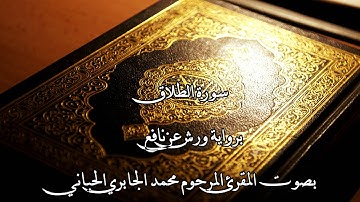 سورة الطلاق
برواية ورش عن نافع
بصوت المقرئ المرحوم محمد الجابري الحياني